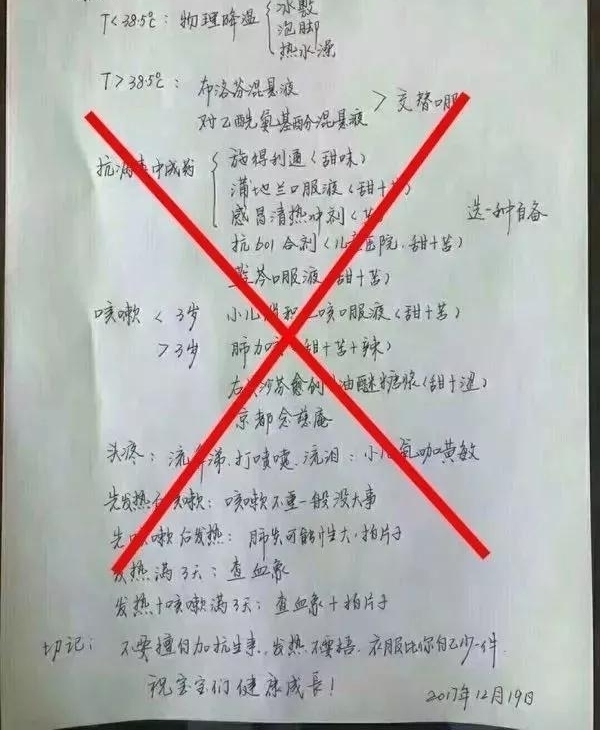 T<38.5℃：物理降温 { 冰敷
泡脚
热水澡
T>38.5℃： 布洛芬混悬液
对乙酰氨基酚混悬液 > 交替口服
抗病毒中成药 { 施得利通（甜味）
蒲地兰口服液（甜+苦）
感冒清热冲剂（苦） 选一种自备
抗601合剂（儿童医院.甜+苦）
黄芩口服液（甜+苦）
咳嗽 < 3岁 小儿消积止咳口服液（甜+苦）
> 3岁 肺力咳（甜+苦+辣）
右美沙芬愈创 油醚糖浆（甜+涩）
京都念慈庵
头疼：流鼻涕.打喷嚏.流泪：小儿氨咖黄敏
先发热后咳嗽：咳嗽不重一般没大事
先咳嗽后发热：肺炎可能性大.拍片子
发热满3天：查血象
发热+咳嗽满3天：查血象+拍片子
切记： 不要擅自加抗生素.发热不要捂.衣服比你自己少一件.
祝宝宝们健康成長！
2017年12月19日